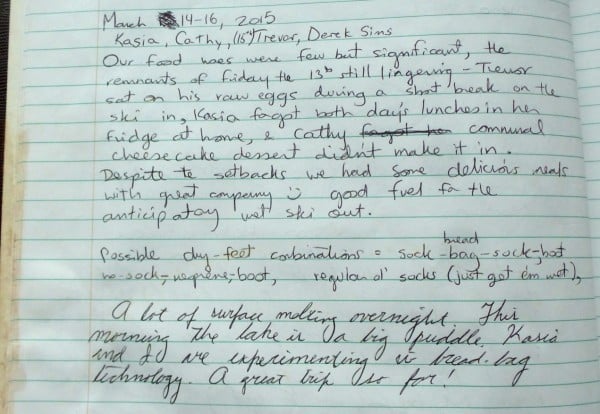 March 14-16, 2015
Kasia, Cathy, (1st) Trevor, Derek Sims
Our food woes were few but significant, the
remnants of friday the 13th still lingering - Trevor
sat on his raw eggs during a short break on the
ski in, Kasia forgot both day's lunches in her
fridge at home, & Cathy forgot her communal
cheesecake dessert didn't make it in.
Despite te setbacks we had some delicious meals
with great company ☺ good fuel for the
anticipatory wet ski out.
Possible dry-feet combinations = sock-bread bag-sock-boot,
no-sock-neoprene-boot, regular ol' socks (just got em wet),
A lot of surface melting overnight. This
morning the lake is a big puddle. Kasia
and I are experimenting in bread-bag
technology. A great trip so far!